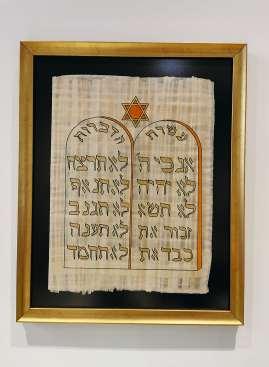 עשרת הדברות
אנכי ה'
לא יהיה
לא תשא
זכור את
כבד את
לא תרצח
לא תנאף
לא תגנב
לא תענה
לא תחמד